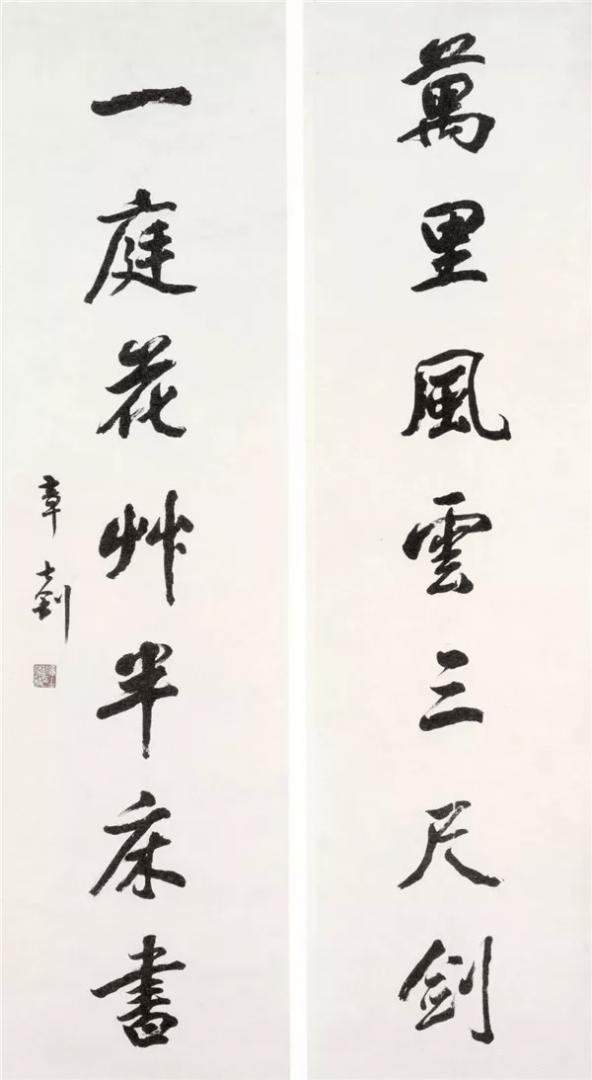 萬里風雲三尺劍
一庭花艸半床書
章士釗